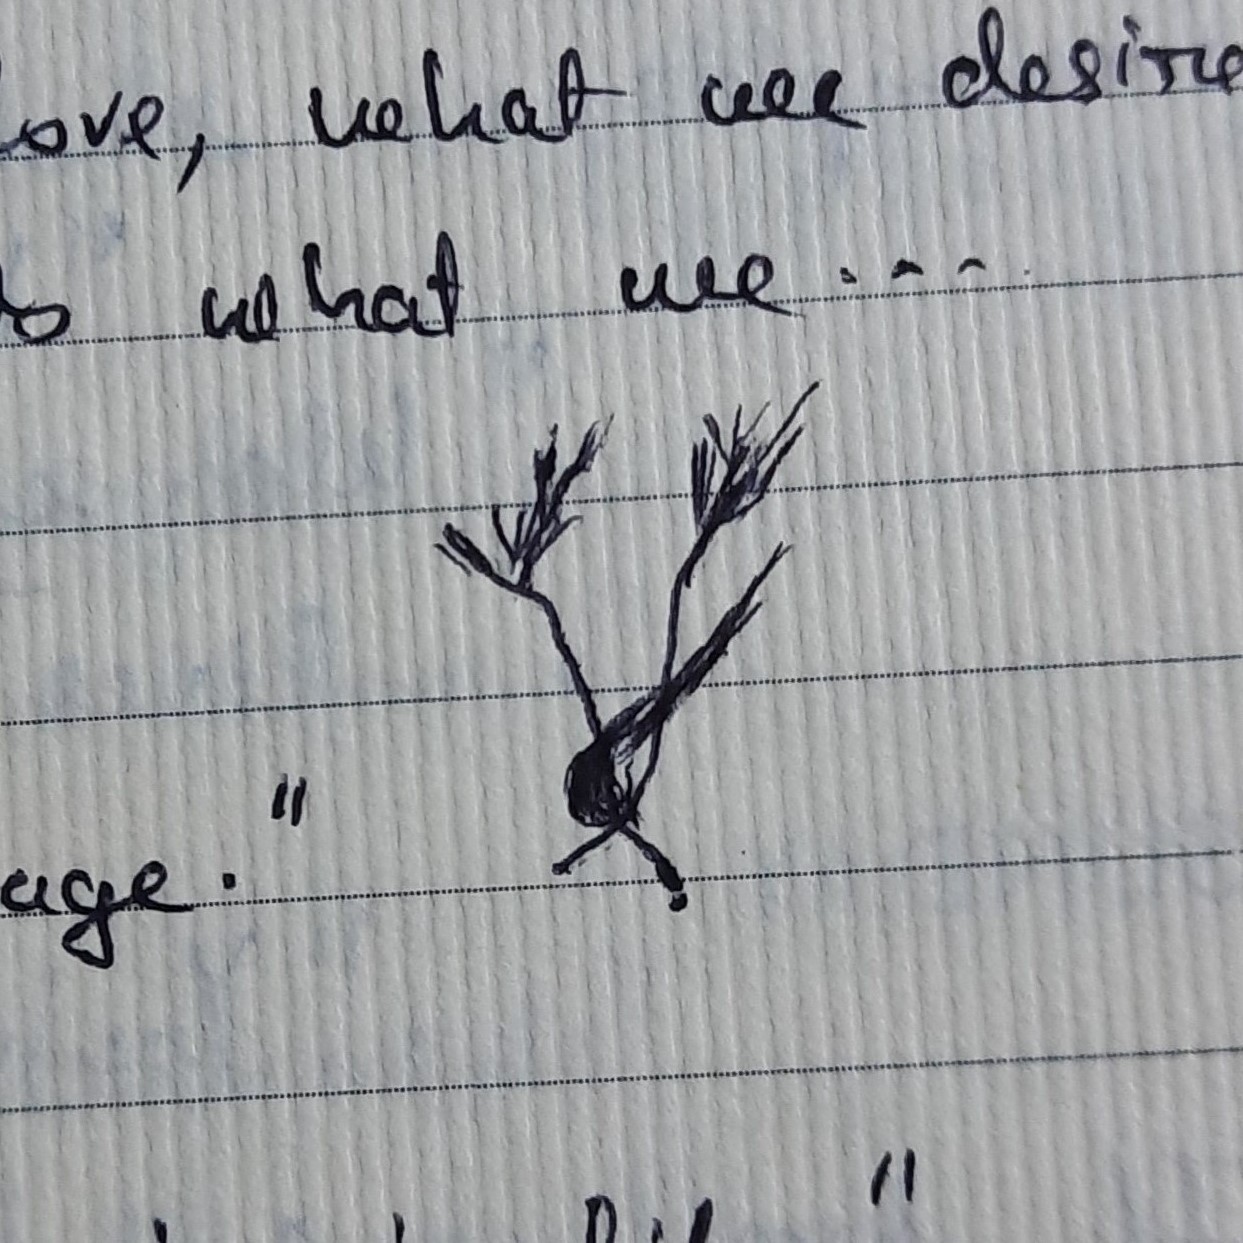 love, what we desire
what we ....
age."
"